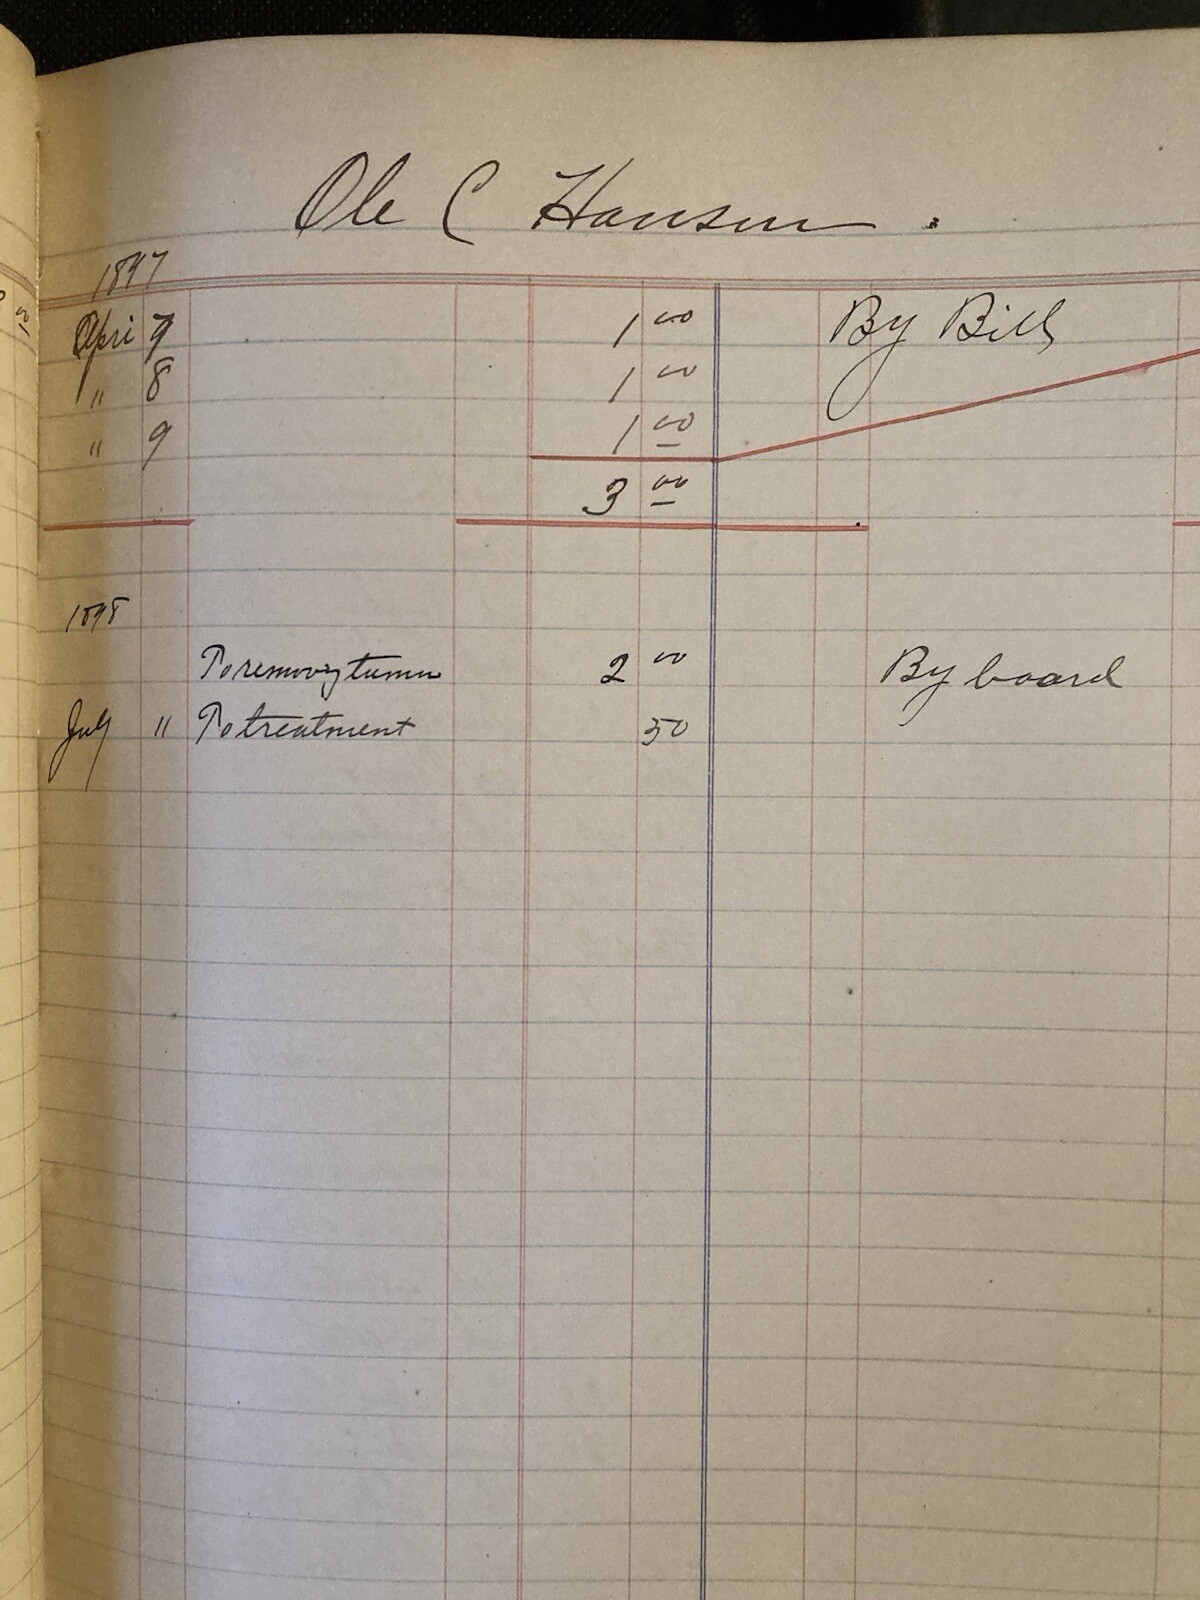 Ole C Hansen.
1897
Apri 7 1 00 By Bill
" 8 1 00
" 9 1 00
3 00
1898
To removg tumor 2 00 By board
July " To treatment 50